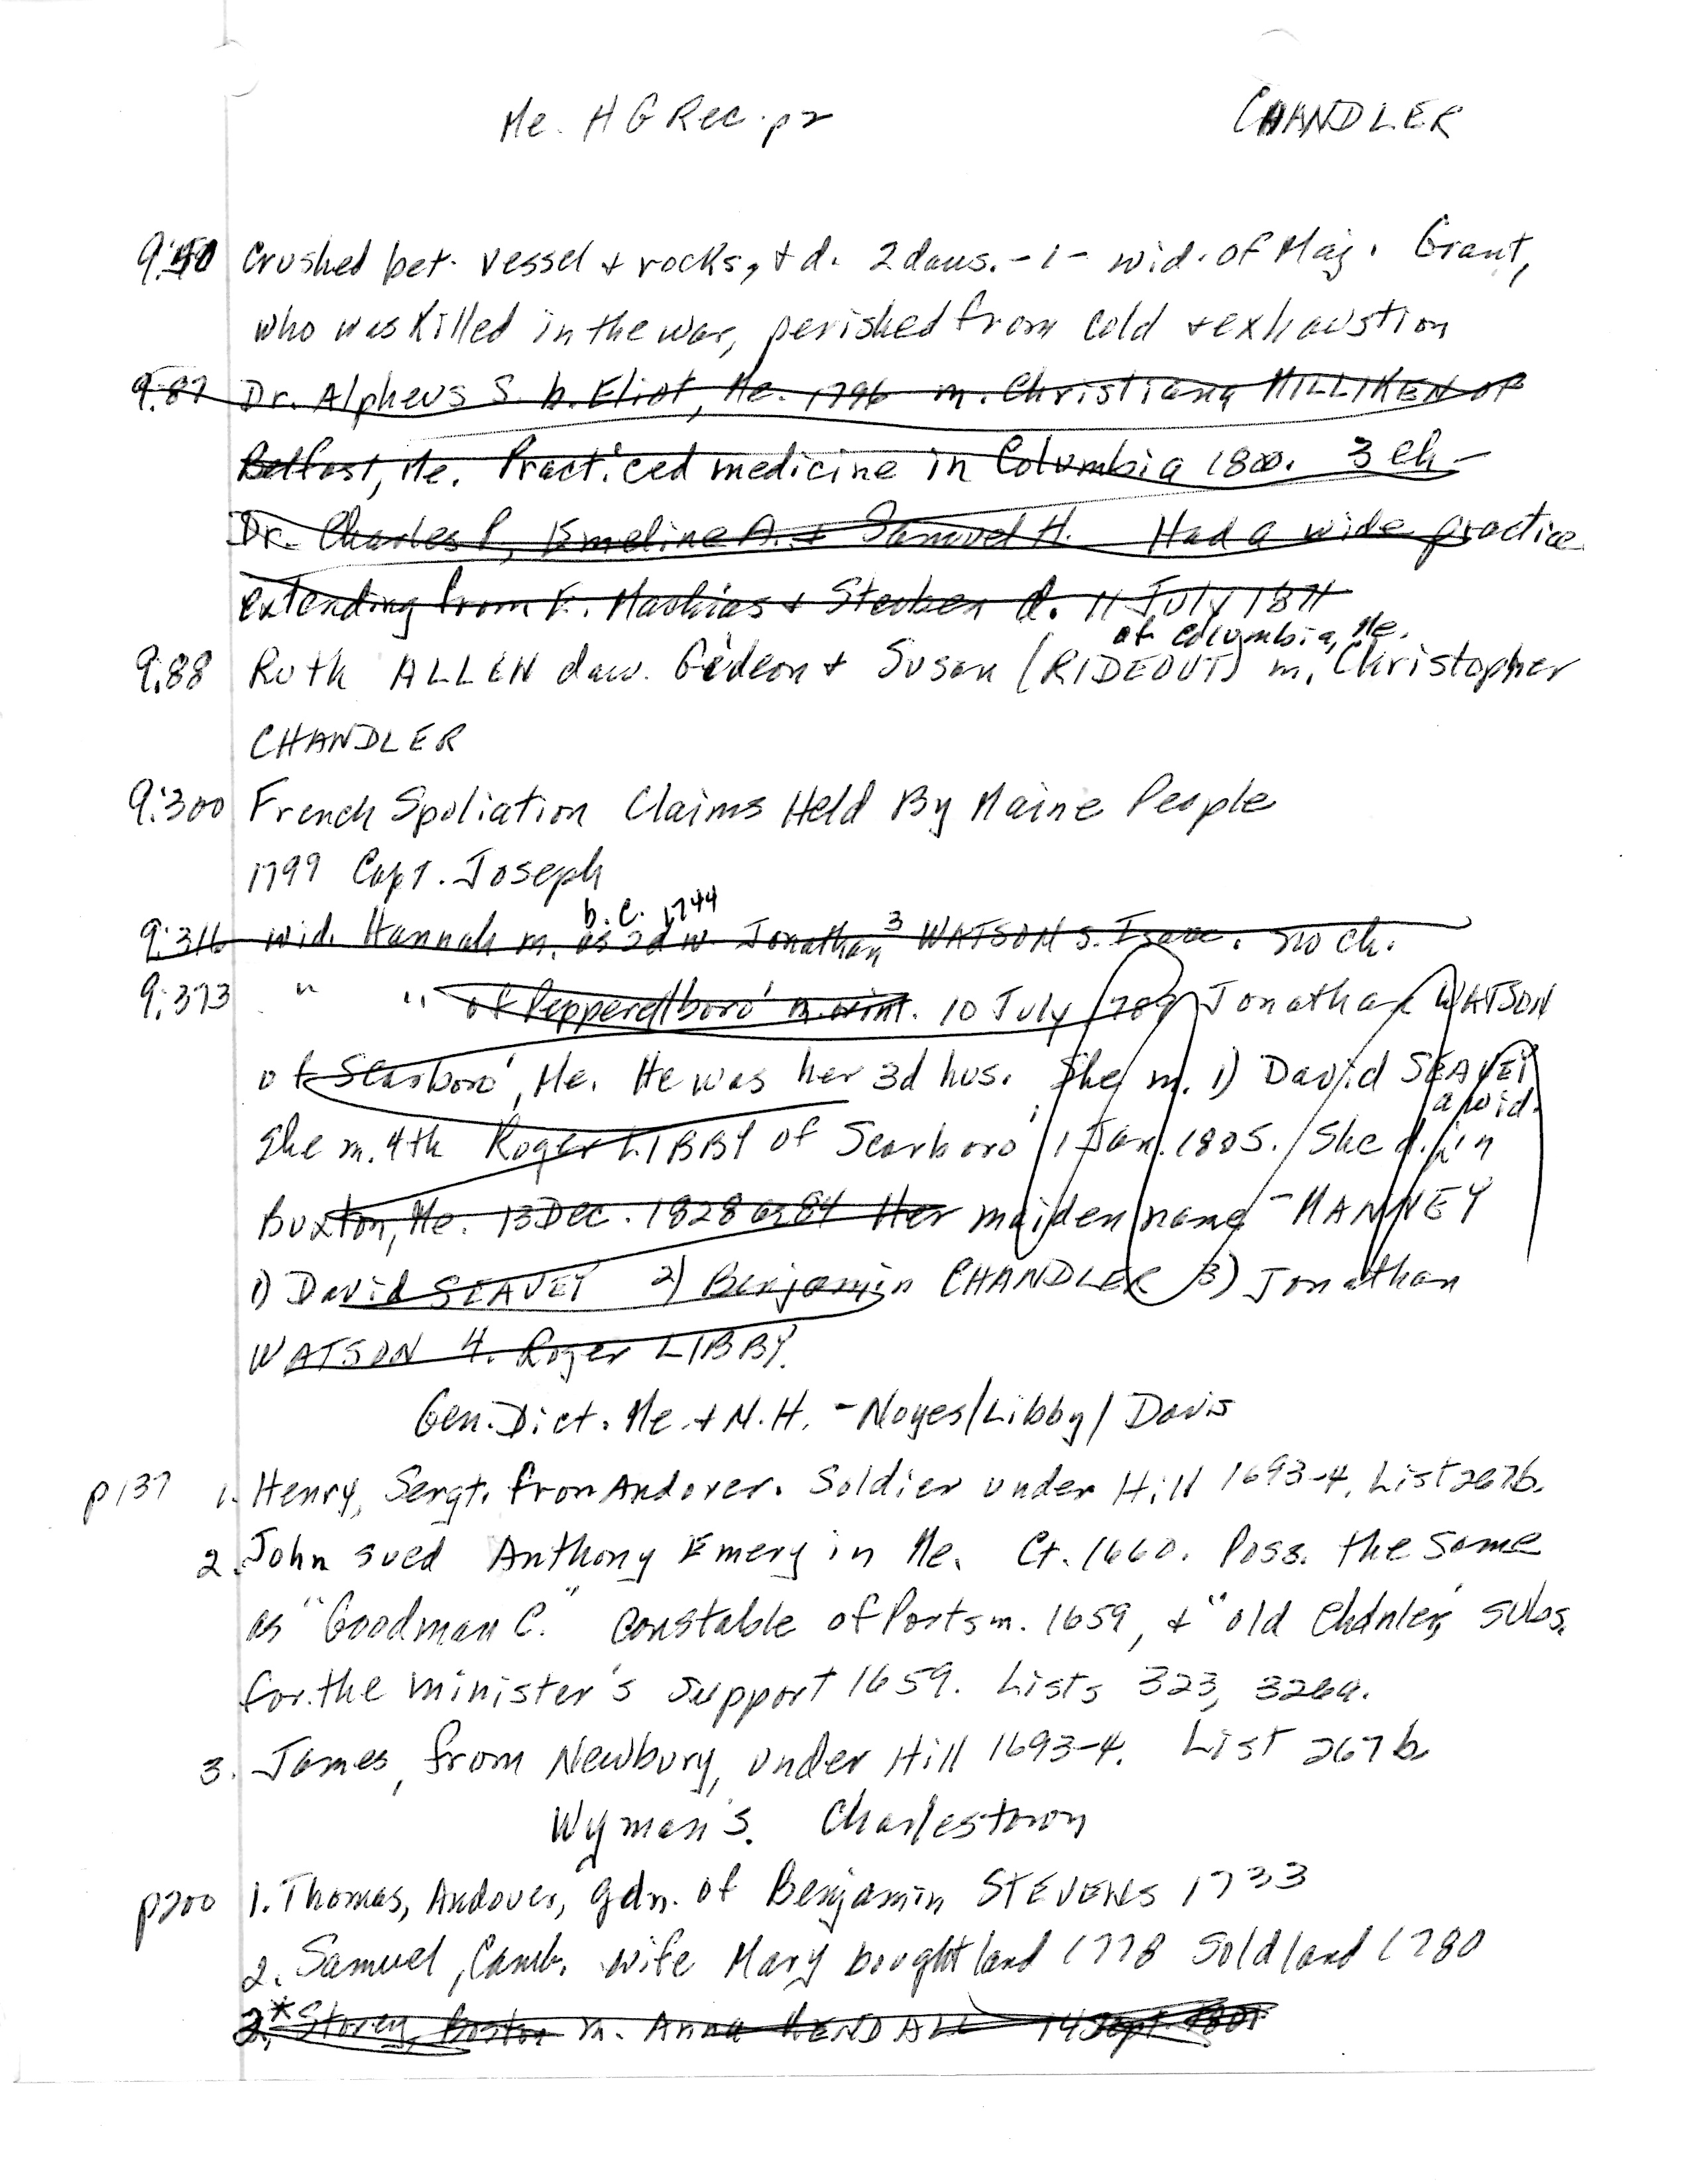 Me. H G Rec. p2 CHANDLER
9:40 Crushed bet. vessel + rocks, + d. 2 daus. - 1 - wid. of Maj. Grant,
who was killed in the war, perished from cold + exhaustion
9:87 Dr. Alpheus S. b. Eliot, Me. 1796 m. Christiana MILLIKEN of
Belfast, Me. Practiced medicine in Columbia 1800. 3 Ch -
Dr. Charles P, Emeline A. + Samuel H. Had a wide practice
extending from E. Machias + Steuben d. 11 July 1871
of Columbia, Me.
9:88 Ruth ALLEN dau. Gideon + Susan (RIDEOUT) m. Christopher
CHANDLER
9:300 French Spoliation Claims Held By Maine People
1799 Capt. Joseph
b. c. 1744
9:316 wid. Hannah m. as 2d w. Jonathan³ WATSON s. Isaac. no ch.
9:373 " " of Pepperellboro' m. int. 10 July 1789 Jonathan WATSON
of Scarboro', Me. He was her 3d hus. She m. 1) David SEAVEY
a wid.
She m. 4th Roger LIBBY of Scarboro' 1 Jan. 1805. She d. in
Buxton, Me. 13 Dec. 1828 ae 84 Her maiden name - MANNEY
1) David SEAVEY 2) Benjamin CHANDLER 3) Jonathan
WATSON 4. Roger LIBBY.
Gen. Dict. Me. + N.H. - Noyes/Libby/Davis
p137 1. Henry, Sergt. from Andover. Soldier under Hill 1693-4. List 267b.
2. John sued Anthony Emery in Me. Ct. 1660. Poss. the same
as "Goodman C." Constable of Portsm. 1659, + "old Chanler," subs.
for the minister's support 1659. Lists 323, 326a.
3. James, from Newbury, under Hill 1693-4. List 267b
Wyman's. Charlestown
p200 1. Thomas, Andover, gdn. of Benjamin STEVENS 1733
2. Samuel, Camb. wife Mary bought land 1778 Sold land 1780
3.* Storey, Boston m. Anna KENDALL 14 Sept. 1801